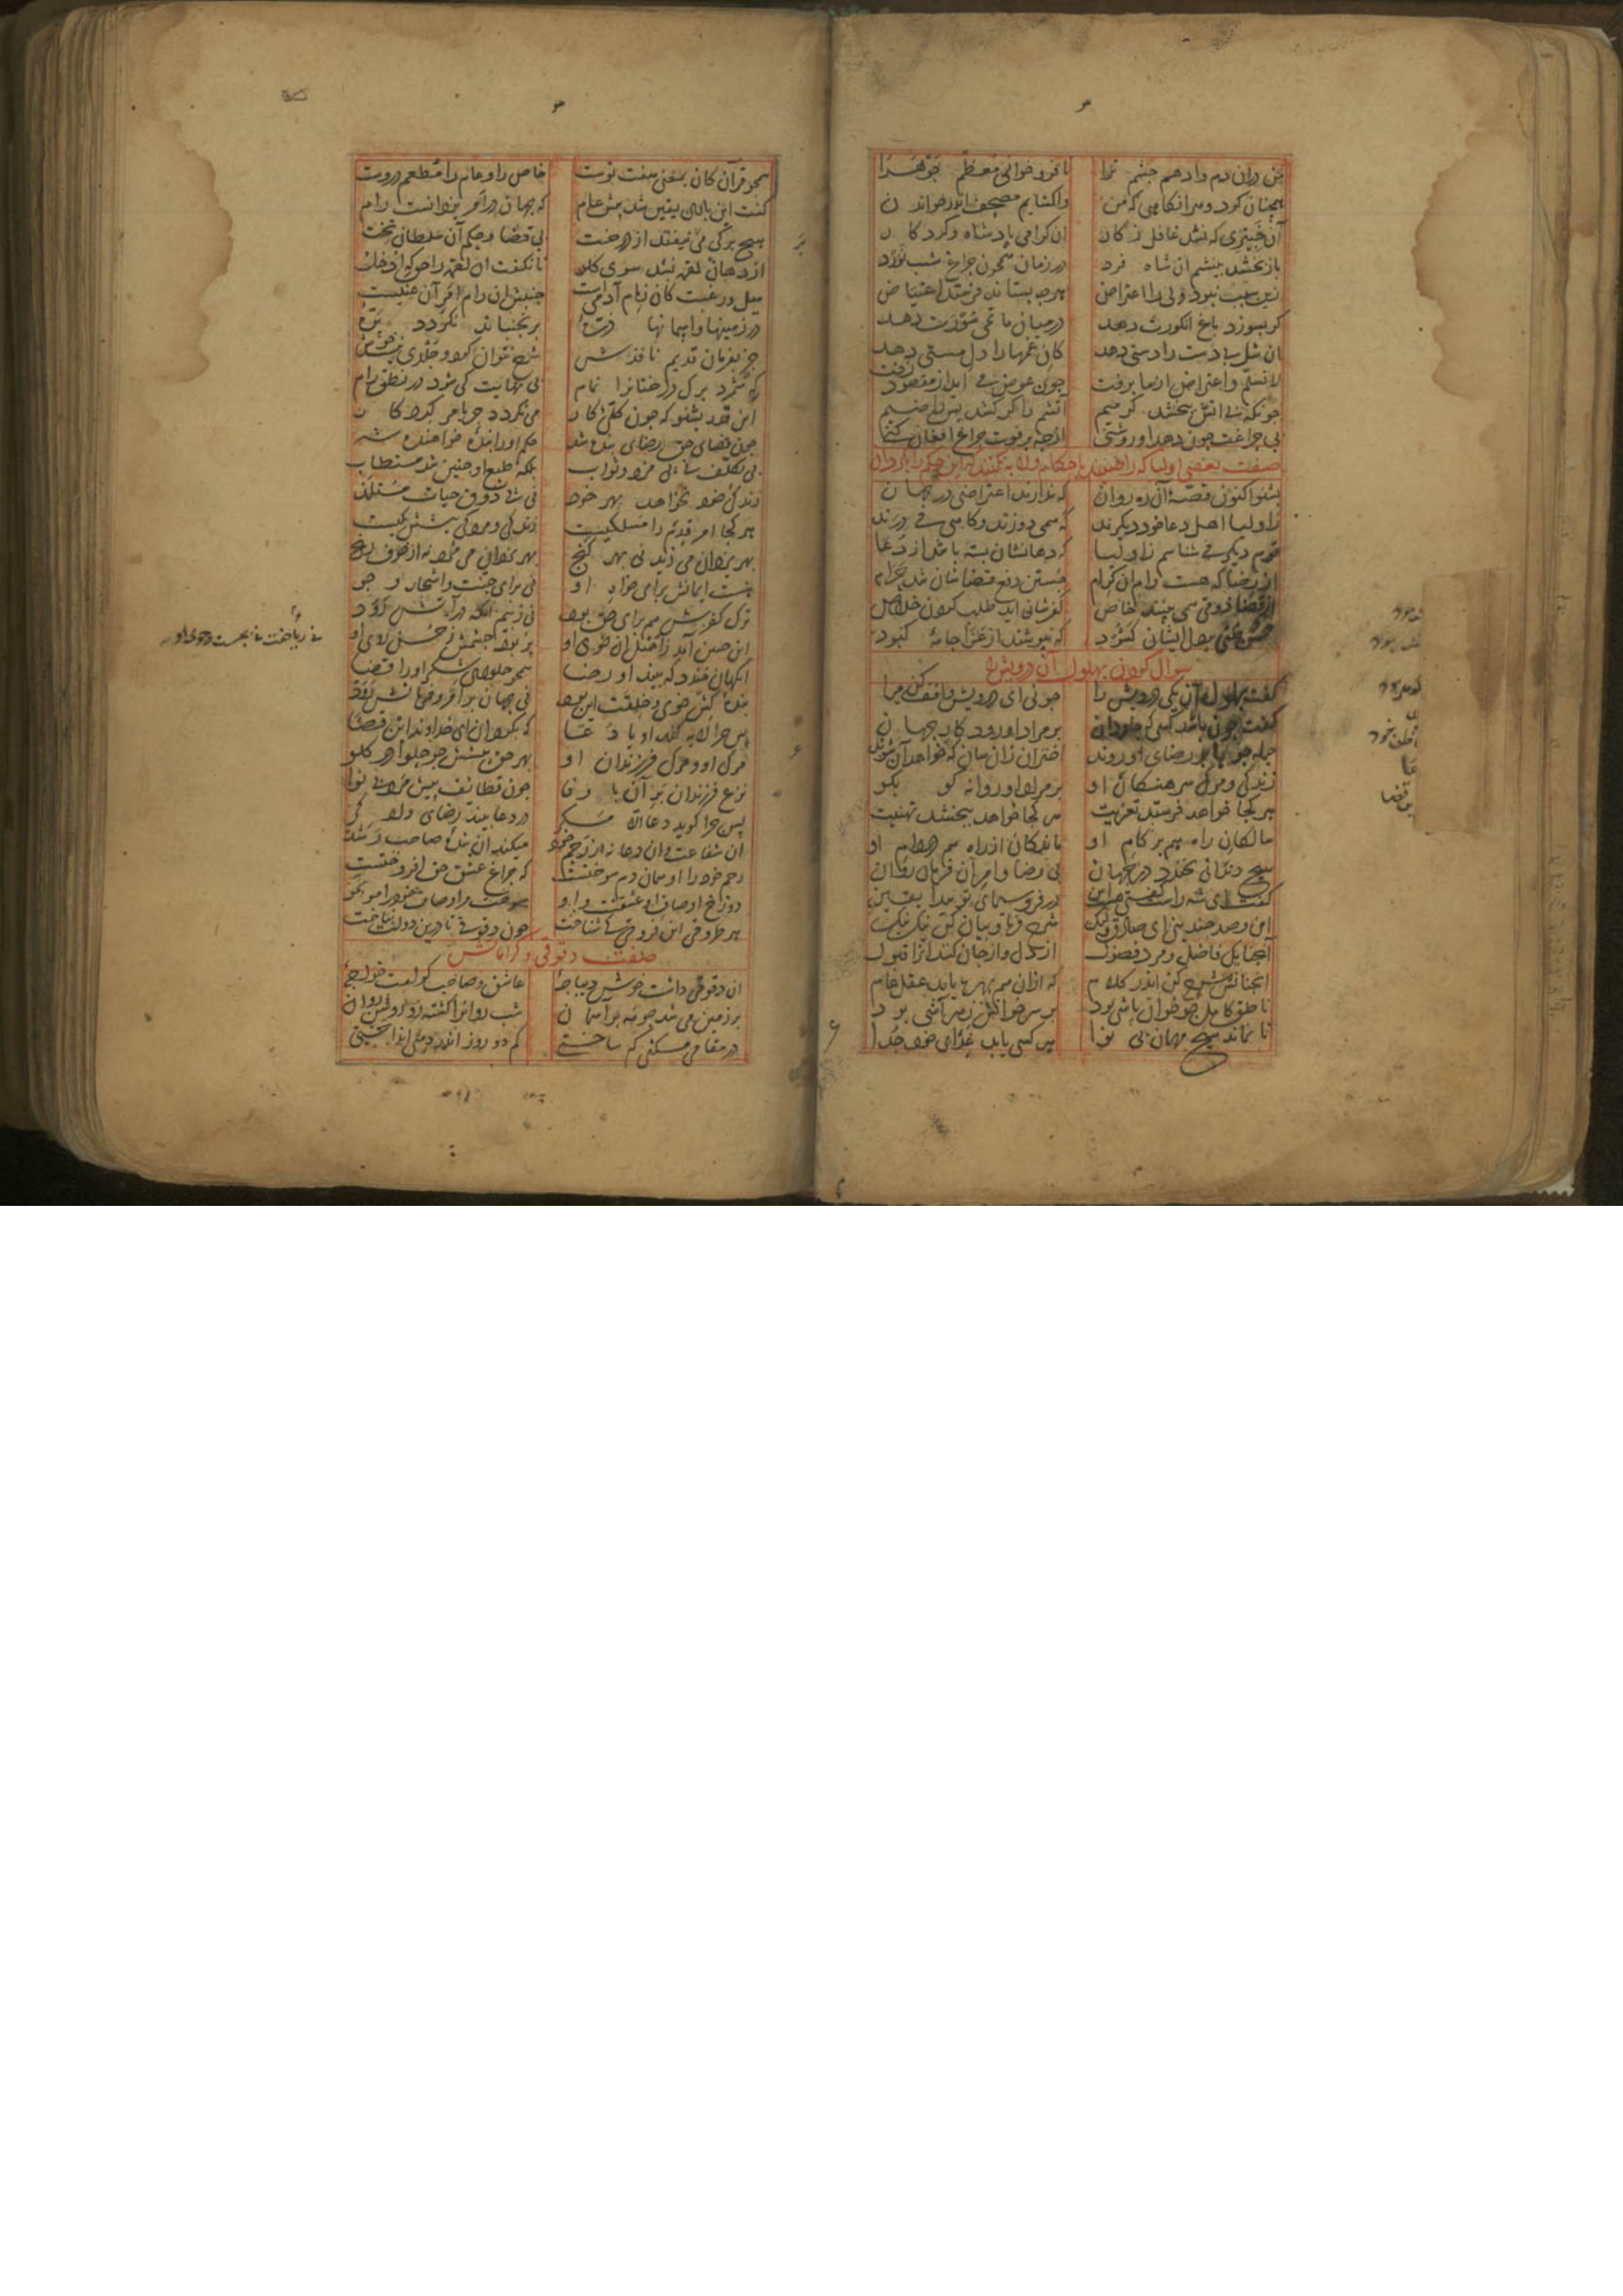 من دران دم وادهم چشم ترا تا فرو خوانی معظم جوهرا
همچنان کرد و هر انکاهی که من واکشایم مصحف اندر خواندن
آن خبیری که نشد غافل ز کار ان کرامی پادشاه و کردکار
باز بخشد بینشم ان شاه فرد در زمان همچون چراغ شب نورد
زین سبب نبود ولی را اعتراض هرچه بستاند فرستد اعتیاض
کر بسوزد باغ انکورت دهد در میان ماتمی سورت دهد
ان شل بی دست را دستی دهد کان غمها را دل مستی دهد
لا نسلم و اعتراض از ما برفت چون عوض می اید از مفقود زفت
چونکه بی اتش بخشد کرمیم اتشم را کر کشد پس راضیم
بی چراغت چون دهد او روشنی از چه بر فوت چراغ افغان کنی
صفت بعضی اولیا که راضیند باحکام و لابه نکنند که این حکم را بکردان
بشنو اکنون قصهٔ آن ره روان که ندارند اعتراضی در جهان
ز اولیا اهل دعا خود دیکرند که همی دوزند و کاهی می درند
قوم دیکر می شناسم ز اولیا که دهانشان بسته باشد از دعا
از رضا که هست رام ان کرام جستن دفع قضاشان شد حرام
از قضا ذوقی همی بینند خاص کفرشان اید طلب کردن خلاص
حسن ظنی بر دل ایشان کشود که نپوشند از عزا جامهٔ کبود
سوال کردن بهلول آن درویش را
کفت بهلول آن یکی درویش را چونی ای درویش واقف کن مرا
کفت چون باشد کسی که جاودان بر مراد او رود کار جهان
سیل و جوها بر رضای او روند اختران زان سان که خواهد آن شوند
زندکی و مرک سرهنکان او بر مراد او روانه کو بکو
هر کجا خواهد فرستد تعزیت هر کجا خواهد ببخشد تهنیت
سالکان راه هم بر کام او ماندکان از راه هم در دام او
هیچ دندانی نخندد در جهان بی رضا و امر آن فرمان روان
کفت ای شه راست کفتی همچنین در فر و سیمای تو پیدا یقین
این و صد چندینی ای صادق ولیک شرح کن و بیان کن نیک نیک
آنچنانک فاضل و مرد فضول از دل و از جان کند انرا قبول
انچنانش شرح کن اندر کلام که ازان هم بهره یابد عقل عام
ناطق کامل چو خوان باشی بود بر سر خوانش ز هر آشی بود
تا نماند هیچ مهمان بی نوا هر کسی یابد غذای خود جدا
همچو قرآن کان بمعنی هفت توست خاص را و عام را مطعم دروست
کفت این باری یقین شد پیش عام که جهان در امر یزدانست رام
هیچ برکی می نیفتد از درخت بی قضا و حکم آن سلطان بخت
از دهان لقمه نشد سوی کلو تا نکفت ان لقمه را حق که ادخلوا
میل و رغبت کان زمام آدمیست جنبش ان رام امر آن غنیست
در زمینها و اسمانها ذرهٔ بر نجنباند نکردد پرهٔ
جز بفرمان قدیم نافذش شرح نتوان کرد و جلدی نیست خوش
که شمرد برک درختانرا تمام بی نهایت کی شود در نطق رام
این قدر بشنو که چون کلی کار می نکردد جز بامر کردکار
چون قضای حق رضای بنده شد حکم اورا بندهٔ خواهنده شد
بی تکلف نی پی مزد و ثواب بلکه طبع او چنین شد مستطاب
زندکی خود نخواهد بهر خود نی پی ذوق حیات مستلذ
هر کجا امر قدم را مسلکیست زندکی و مردکی پیشش یکیست
بهر یزدان می زید نی بهر کنج بهر یزدان می مرد نه از خوف رنج
هست ایمانش برای خواست او نی برای جنت و اشجار و جو
ترک کفرش هم برای حق بود نی ز بیم انکه در آتش رود
این چنین آمد ز اصل ان خوی او
نی ریاضت نی بجست و جوی او
انکهان خندد که بیند او رضا همچو حلوای شکر او را قضا
بندهٔ کش خوی و خلقت این بود نی جهان بر امر و فرمانش رود
پس چرا لابه کند او یا دعا که بکردان ای خداوند این قضا
مرک او و مرک فرزندان او بهر حق پیشش چو حلوا در کلو
نزع فرزندان بر آن با وفا چون قطائف پیش مرد بی نوا
پس چرا کوید دعا الا مکر در دعا بیند رضای دادکر
ان شفاعت و ان دعا نه از رحم خود میکند ان بندهٔ صاحب رشد
رحم خود را او همان دم سوختست که چراغ عشق حق افروختست
دوزخ اوصاف او عشقست و او سوخت مر اوصاف خود را مو بمو
هر طروقی این فروقی کی شناخت چون دقوقی تا درین دولت بتاخت
صفت دقوقی و کراماتش
ان دقوقی داشت خوش دیباجهٔ عاشق و صاحب کرامت خواجهٔ
بر زمین می شد چو مه بر اسمان شب روانرا کشته زو روشن روان
در مقامی مسکنی کم ساختی کم دو روز اندر دهی انداختی